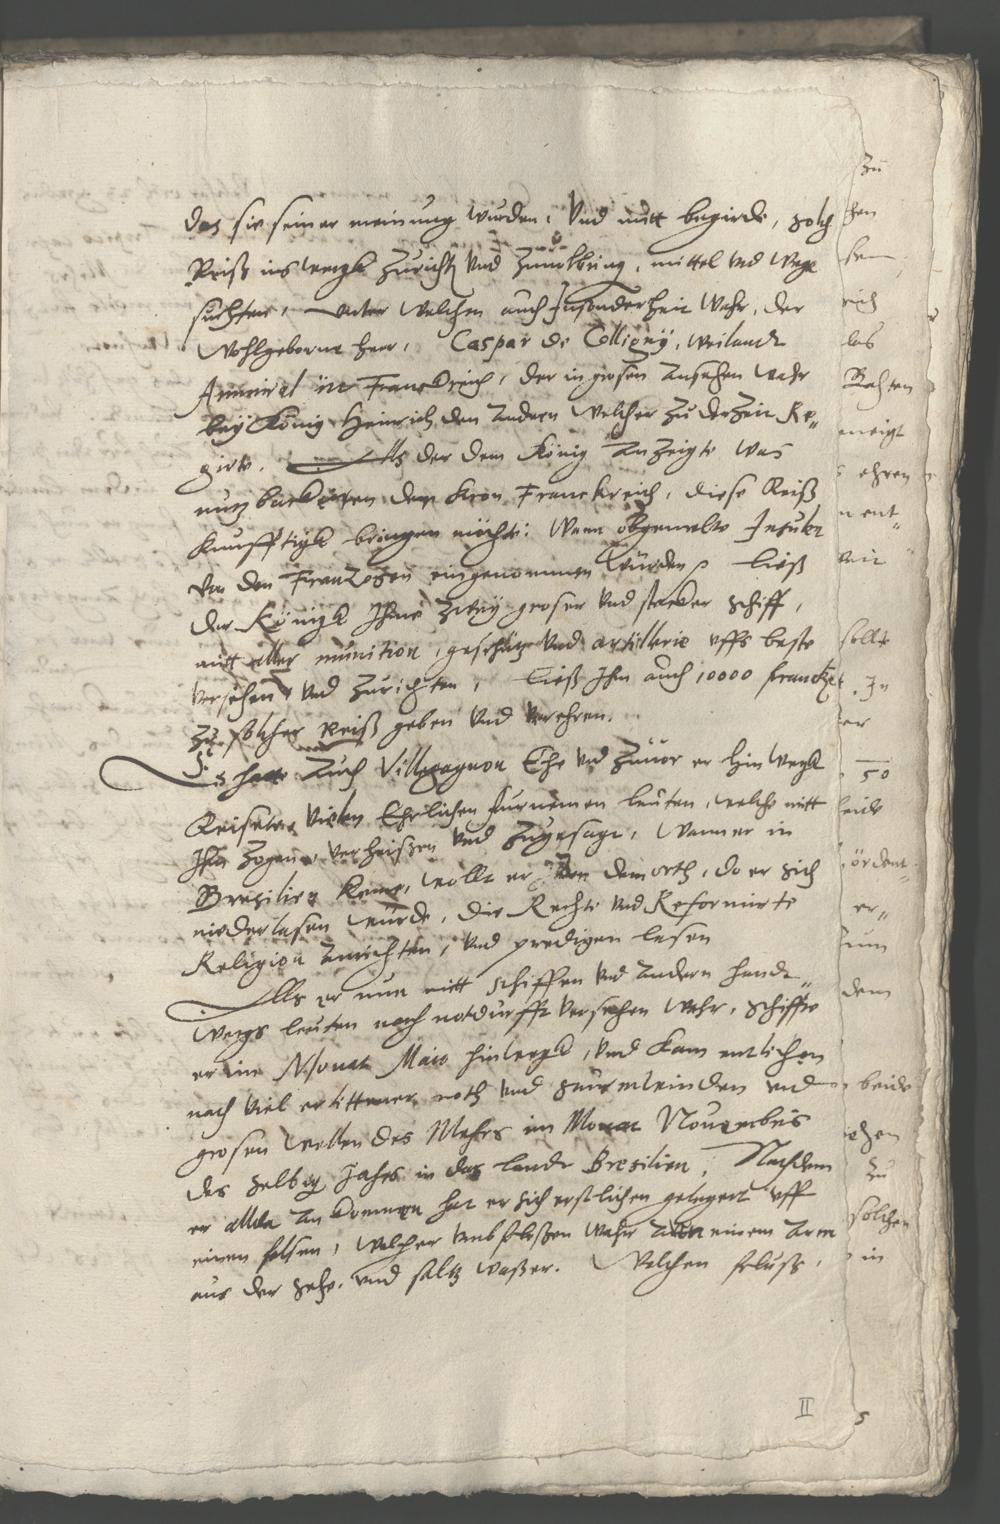 das sie seiner meinung wurden, Vnd mitt begirde, solch
Reiß ins werck Zurichtt Vnd Zuuolbring, mittel vnd Wege
suchten, vnter Welchen auch Insonderheit Wahr, der
Wohlgeborne Herr, Caspar de Colligny, Weilandt
Ammiral in Franckreich, der in grosen Ansehen Wahr
bey König Heinrich, den Andern Welcher Zu der Zeit Re„
girte. Als der dem König Anzeigte was
nutzbarkeiten der Kron Franckreich, diese Reiß
Kunfftigk bringen möchte: Wann obgemelte Insulen
von den Franzosen eingenommen würden, Ließ
der Königk Ihme Zwey groser Vnd starcker schiff,
mitt aller munition, geschütz Vnd artillerie vffs beste
versehen, Vnd Zurichten, Ließ Ihm auch 10000 francken
Zu solcher Reiß geben Vnd Verehren.
Es hatte Auch Villegagnon Ehe Vnd Zuuor er hin Wegk
Reisete, Vielen Ehrlichen furnemen leuten, welche mitt
Ihm Zogen, verheißen Vnd Zugesagt, Wann er in
Bresilien keme, wollt er An dem orth, do er sich
niderlasen würde, die Rechte Vnd Reformirte
Religion Anrichten, Vnd predigen lasen
Alls er nun mitt schiffen Vnd Andern handt„
Wergs leuten nach notdurfft Versehen Wahr, schiffte
er im Monat Maio hinwegk, Vnd Kam entlichen
nach Viel erlittener noth Vnd sturmwinden vnd
grosen wellen des Mehrs im Monat Nouembris
des selbig Jahrs in das landt Bresilien, Nachdem
er allda Ankommen hat er sich erstlichen gelegert vff
einen felsen, Welcher Vmbfloßen Wahr von einem Arm
aus der sehe, vnd saltz waßer. Welchen fluss,
II
Zu
hen
sem
reich
das
Rahten
meigt
ehren
nt„
mir
sollte
. In
er
50
beide
ördent„
er„
Zum
dem
beide
chen
Zu
solchen
in
5